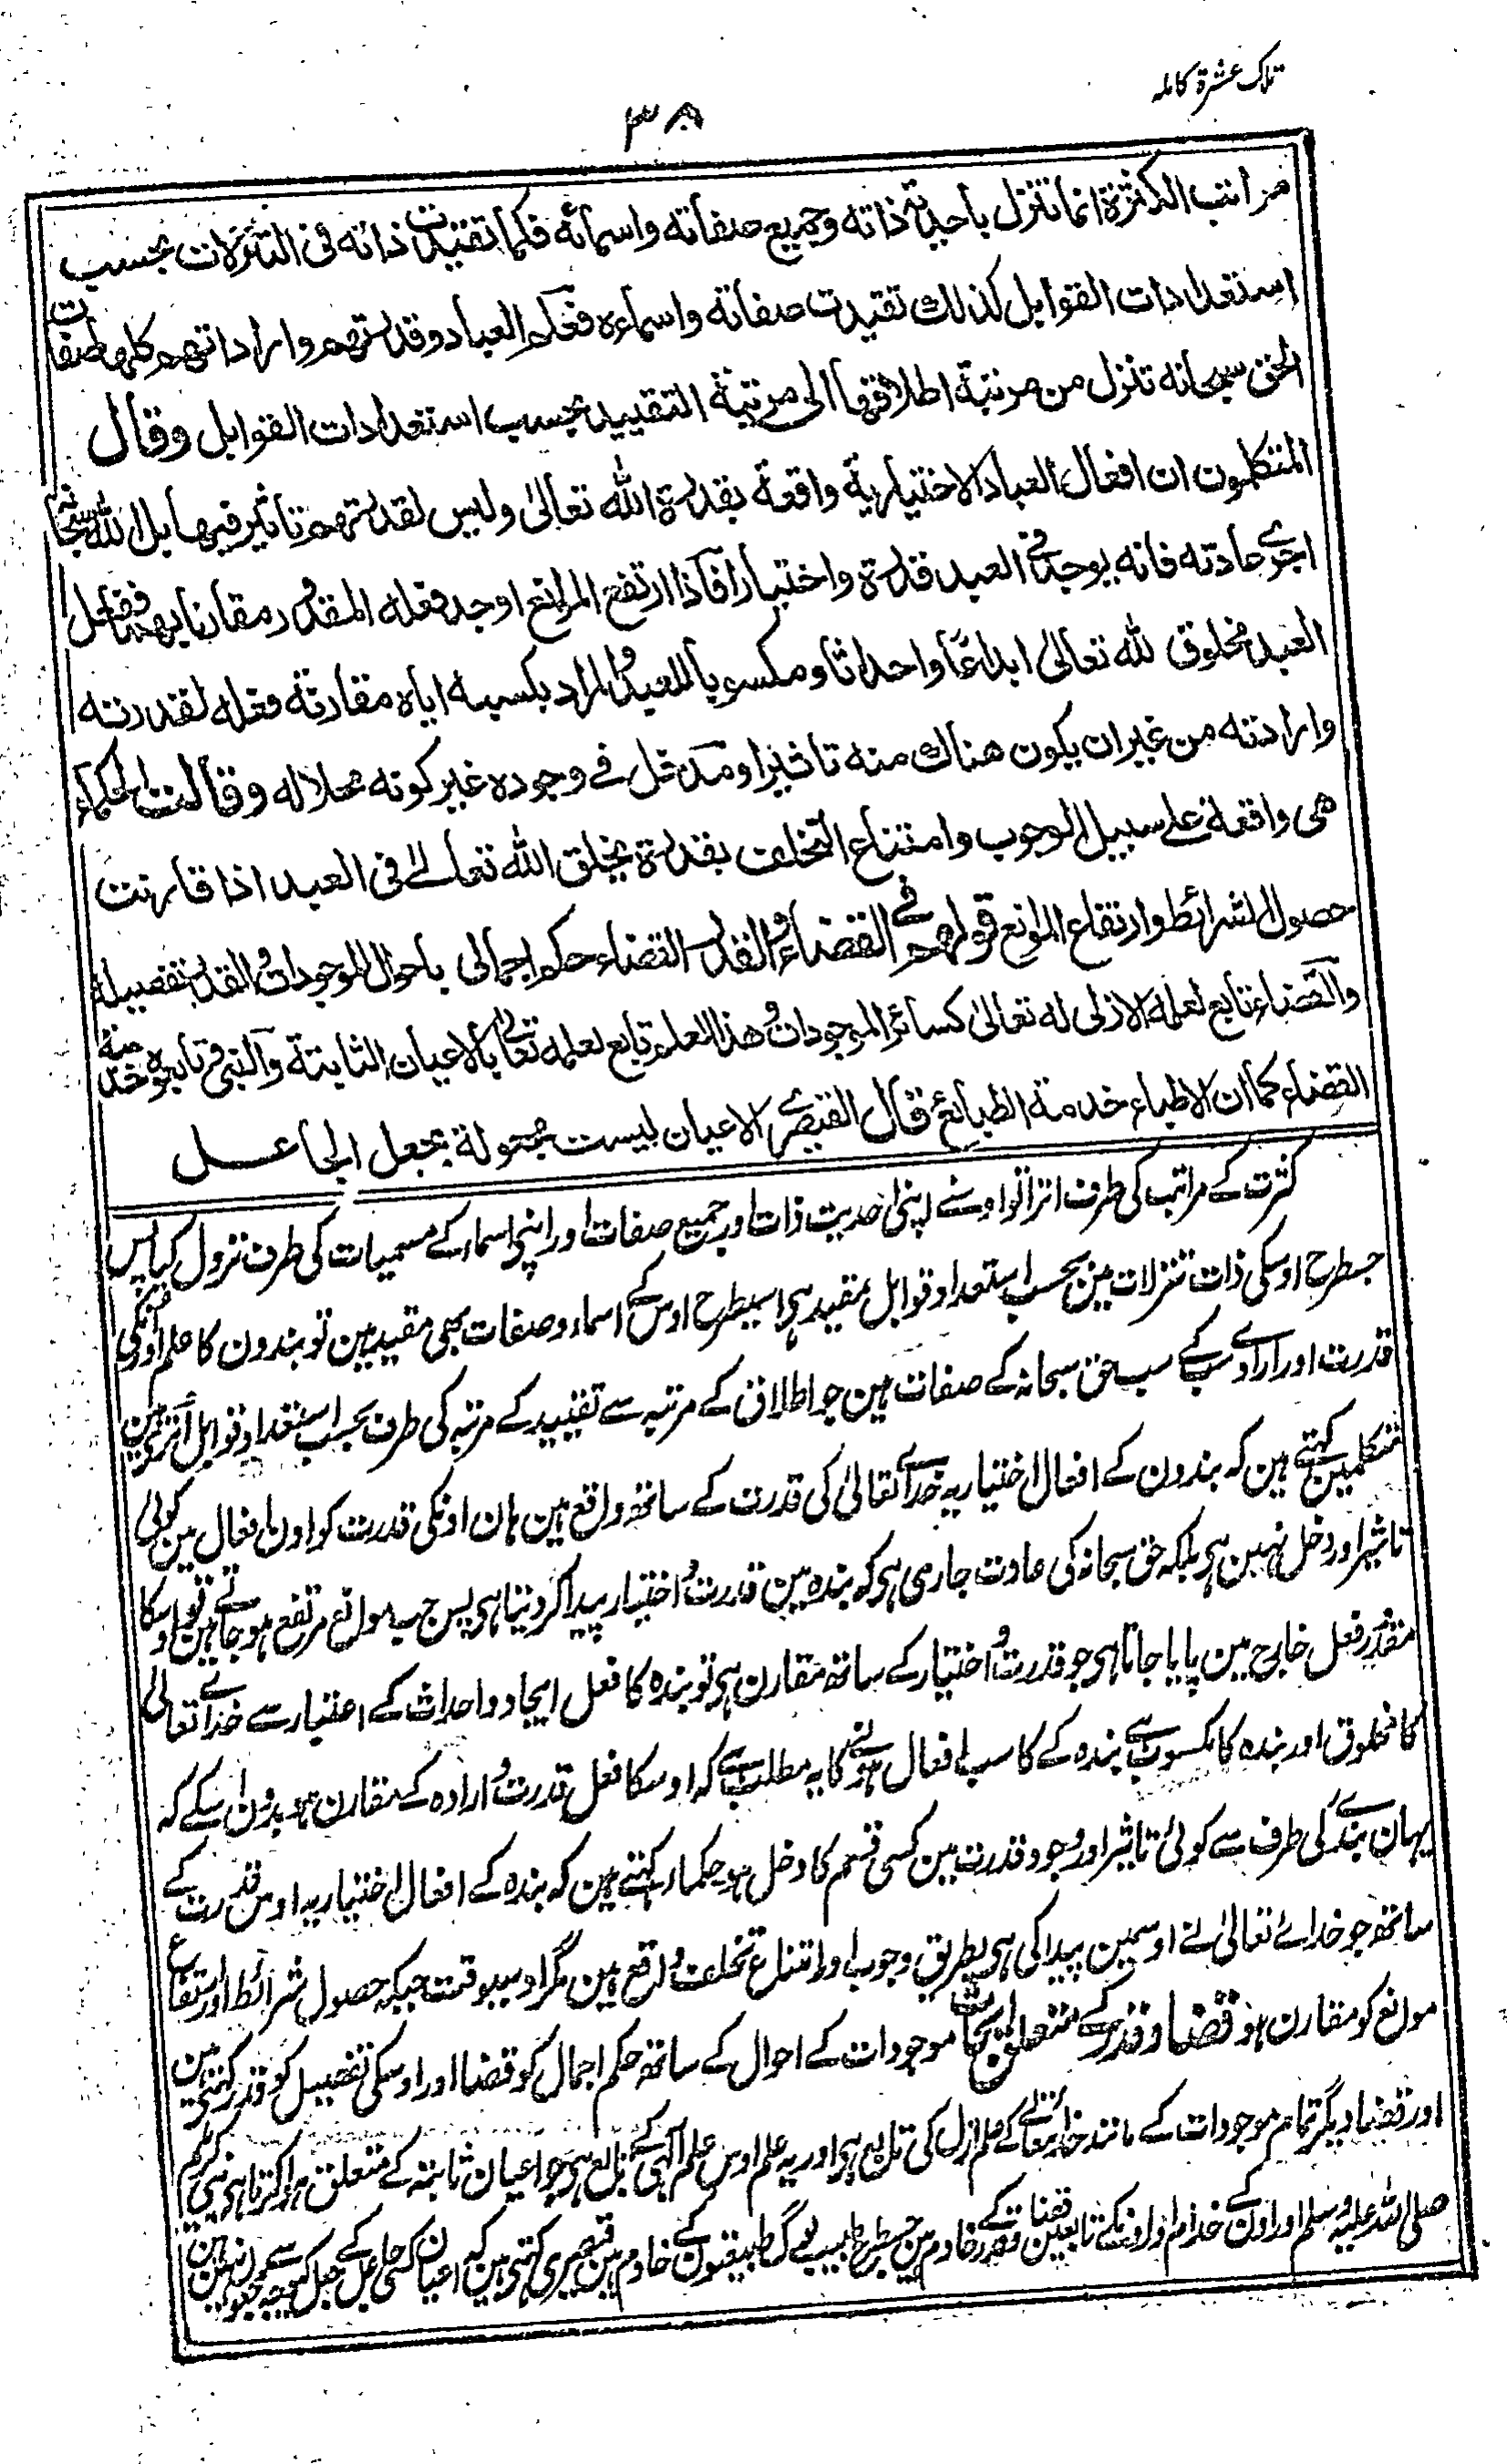 تلک عشرة کامله
۳۸
مراتب الكثرة انما تنزل باحدية ذاته وجميع صفاته واسمائه فكما تقيدت ذاته فى التنزلات بحسب
استعدادات القوابل كذلك تقيدت صفاته واسماءه فعلم العباد وقدرتهم وارادتهم كلها صفات
الحق سبحانه تنزل من مرتبة اطلاقها الى مرتبة التقييد بحسب استعدادات القوابل وقال
المتكلمون ان افعال العباد الاختيارية واقعة بقدرة الله تعالىٰ وليس لقدرتهم تاثير فيها بل الله سبحانه
اجرى عادته فانه يوجد فى العبد قدرة واختيارا فاذا ارتفع الموانع اوجد فعله المقدور مقارنا بهما ففعل
العبد مخلوق لله تعالىٰ ابداعًا واحداثا ومكسوبا للعبد والمراد بكسبه اياه مقارنة فعله لقدرته
وارادته من غير ان يكون هناك منه تاثير او مدخل فے وجوده غير كونه محلا له وقالت الحكماء
هى واقعة على سبيل الوجوب وامتناع التخلف بقدرة يخلق الله تعالےٰ فى العبد اذا قارنت
حصول الشرائط وارتفاع الموانع قولهم فے القضاء والقدر القضاء حكم اجمالى باحوال الموجودات والقدر تفصيله
والقضاء تابع لعلمه الازلى له تعالىٰ كسائر الموجودات وهذا العلم تابع لعلمه تعالىٰ بالاعيان الثابتة والنبى وتابعوه خدمة
القضاء كما ان الاطباء خدمة الطبائع قال القيصرے الاعيان ليست مجعولة بجعل الجاعل
کثرت کے مراتب کی طرف اترا تو اوسنے اپنی احدیت ذات اور جمیع صفات اور اپنی اسماء کے مسمیات کی طرف نزول کیا پس
جسطرح اوسکی ذات تنزلات مین بحسب استعداد قوابل مقید ہی اسیطرح اوس کے اسماء و صفات بھی مقید ہین تو بندون کا علم اور اونکی
قدرت اور ارادے سب کے سب حق سبحانہ کے صفات ہین جو اطلاق کے مرتبہ سے تقیید کے مرتبہ کی طرف بحسب استعداد قوابل اترتی ہین
متکلمین کہتے ہین کہ بندون کے افعال اختیاریہ خدائے تعالیٰ کی قدرت کے ساتھ واقع ہین ہان اونکی قدرت کو اون افعال مین کوئی
تاثیر اور دخل نہین ہی بلکہ حق سبحانہ کی عادت جاری ہی کہ بندہ مین قدرت و اختیار پیدا کر دیتا ہی پس جب موانع مرتفع ہو جاتے ہین تو اوسکا
مقدور فعل خارج مین پایا جاتا ہی جو قدرت و اختیار کے ساتھ مقارن ہی تو بندہ کا فعل ایجاد و احداث کے اعتبار سے خدائے تعالیٰ
کا مخلوق اور بندہ کا مکسوب ہے بندہ کے کاسب افعال ہونے کا یہ مطلب ہے کہ اوسکا فعل قدرت و ارادہ کے مقارن ہو بدون اسکے کہ
یہان بندے کی طرف سے کوئی تاثیر اور وجود قدرت مین کسی قسم کا دخل ہو حکماء کہتے ہین کہ بندہ کے افعال اختیاریہ اوس قدرت کے
ساتھ جو خدائے تعالیٰ نے اوسمین پیدا کی ہی بطریق وجوب اور امتناع تخلف واقع ہین مگر اوسیوقت جبکہ حصول شرائط اور ارتفاع
موانع کو مقارن ہو قضا و قدر کے متعلق ابحاث موجودات کے احوال کے ساتھ حکم اجمال کو قضا اور اوسکی تفصیل کو قدر کہتے ہین
اور قضا دیگر تمام موجودات کے مانند خدائے تعالےٰ کے علم ازلی کی تابع ہی اور یہ علم اوس علم الٰہی کے تابع ہی جو اعیان ثابتہ کے متعلق ہوا کرتا ہی نبی کریم
صلی اللہ علیہ وسلم اور اون کے خدام اور اونکے تابعین قضا و قدر کے خادم ہین جسطرح طبیب لوگ طبیعتون کے خادم ہین قیصری کہتے ہین کہ اعیان کسی جاعل کے جعل کیوجہ سے مجعول نہین ہین